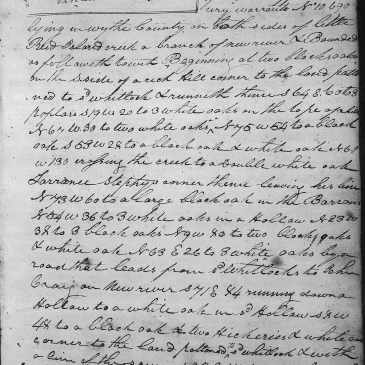 Jury warrants No 10690
lying in wythe County on both sides of little
Reed Island creek a branch of new river & Bounded
as followeth towit Beginning at two black oaks
on the S side of a rich Hill corner to the land patte
ned to sd whitlock & runneth thence S 64 E 60 to 3
poplars S 19 W 20 to 3 white oaks on the top of a hill
N 67 W 30 to two white oaks, N 75 W 54 to a black
oak S 53 W 28 to a black oak & white oak N 61
W 130 crossing the creek to a double white oak
corner thence leaving her line
N 73 W 60 to a large black oak in the Barrens
N 54 W 36 to 3 white oaks in a Hollow N 23 W
38 to 3 black oaks N 9 W 80 to two black oaks
& white oak N 63 E 26 to 3 white oaks by a
road that leads from whitlocks to
Craig on New river S 71 E 84 running down a
Hollow to a white oak in sd Hollow S 8 W
48 to a black oak & two Hickories & white oak
corner to the land pattened sd whitlock & with
a line of the